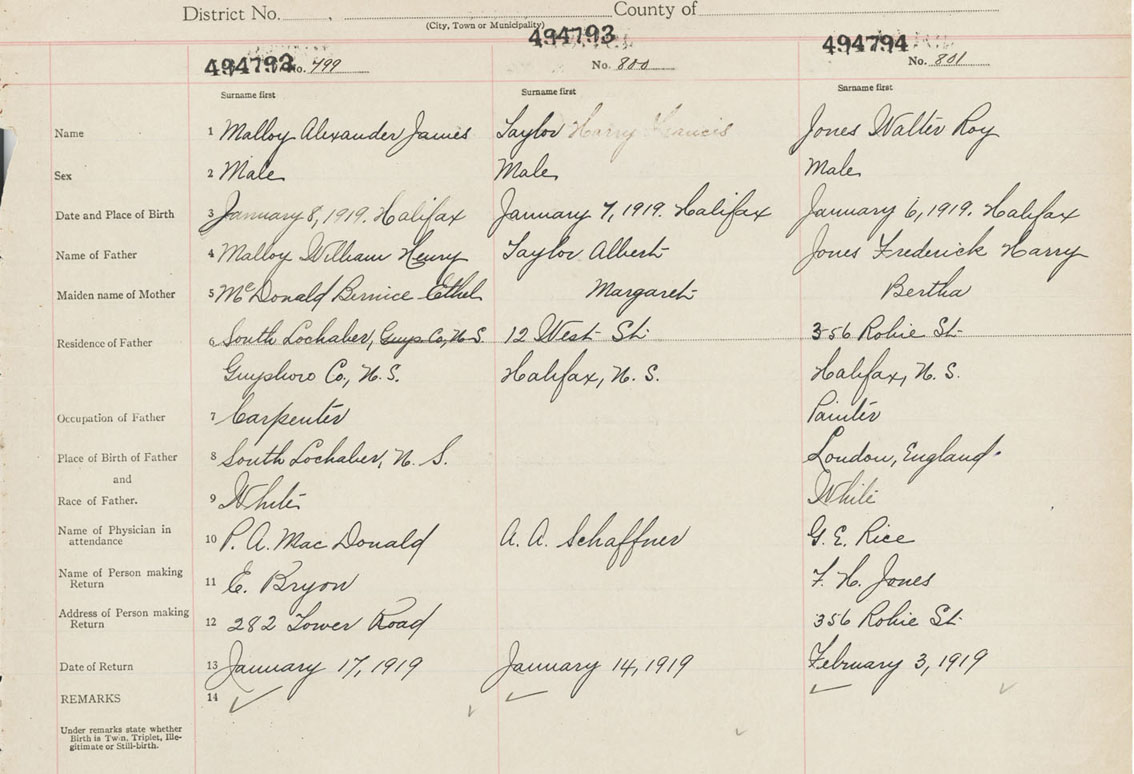 District No. County of
(City, Town or Municipality)
494793 494793 494794
No. 799 No. 800 No. 801
Surname first Surname first Surname first
Name 1 Malloy Alexander James Taylor Harry Francis Jones Walter Roy
Sex 2 Male Male Male
Date and Place of Birth 3 January 8, 1919. Halifax January 7, 1919. Halifax January 6, 1919. Halifax
Name of Father 4 Malloy William Henry Taylor Albert Jones Frederick Harry
Maiden name of Mother 5 McDonald Bernice Ethel Margaret Bertha
Residence of Father 6 South Lochaber, Guys. Co, N.S. 12 West St. 356 Robie St.
Guysboro Co., N.S. Halifax, N.S. Halifax, N.S.
Occupation of Father 7 Carpenter Painter
Place of Birth of Father 8 South Lochaber, N.S. London, England.
and
Race of Father. 9 White White
Name of Physician in
attendance 10 P. A. MacDonald A. A. Schaffner G. E. Rice
Name of Person making
Return 11 E. Bryon F. H. Jones
Address of Person making
Return 12 282 Tower Road 356 Robie St.
Date of Return 13 January 17, 1919 January 14, 1919 February 3, 1919
REMARKS 14
Under remarks state whether
Birth is Twin, Triplet, Ille-
gitimate or Still-birth.